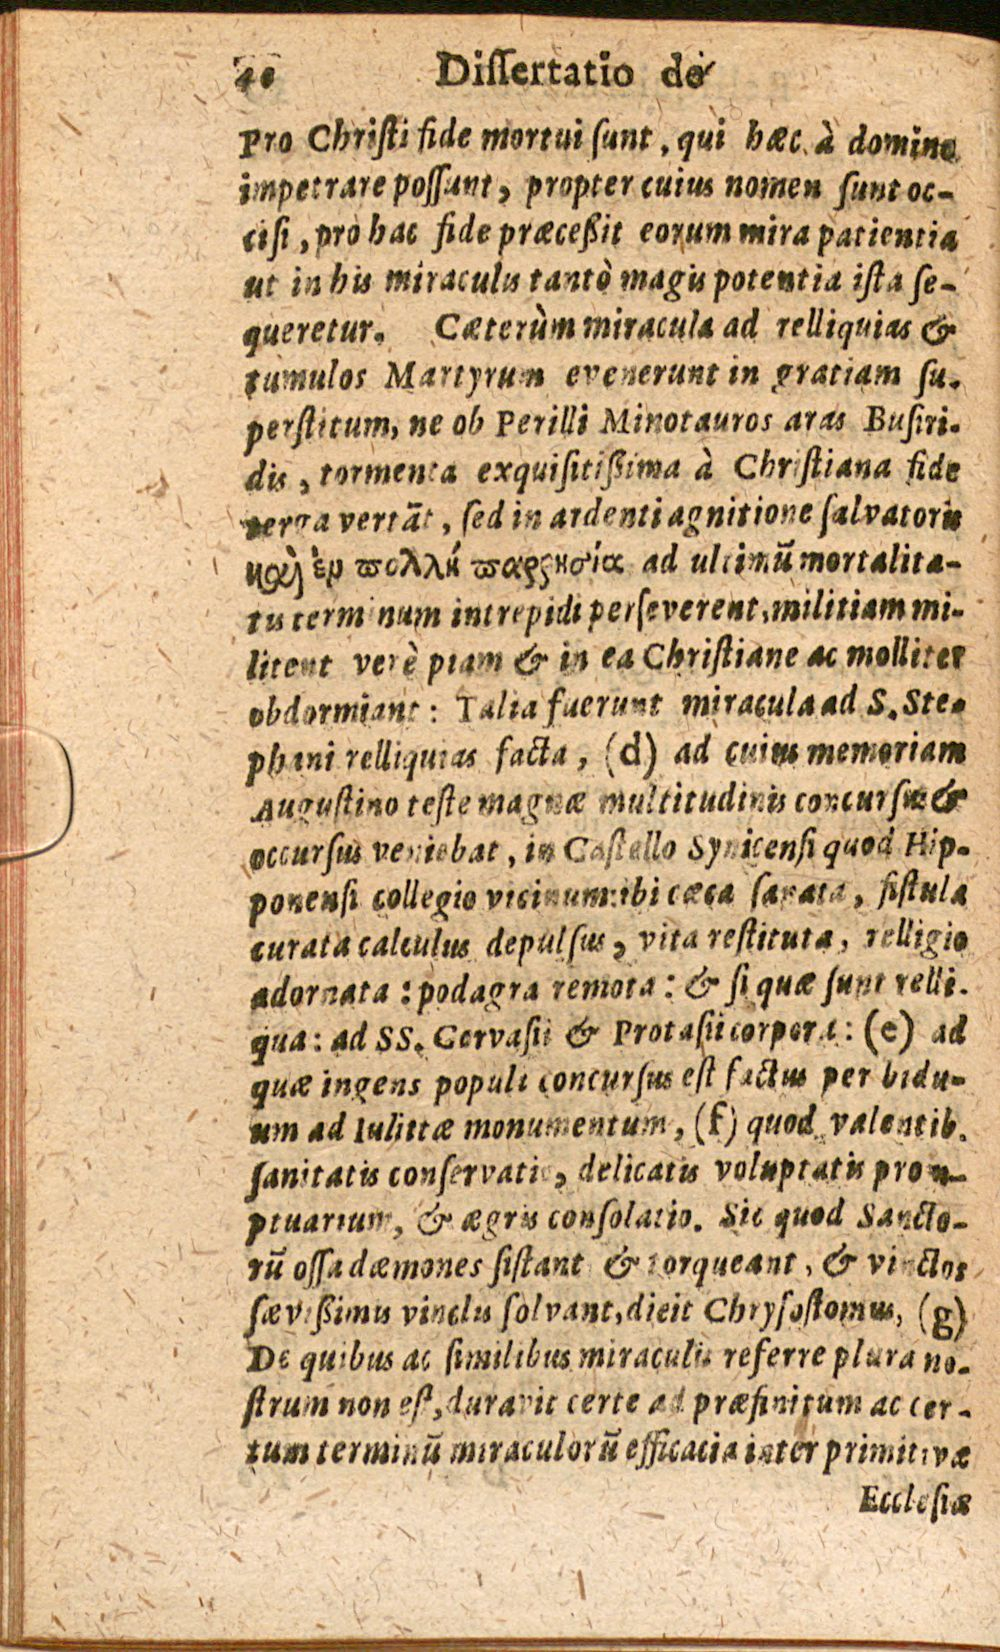 40 Dissertatio de
Pro Christi fide mortui sunt, qui hæc à domino
impetrare possunt, propter cuius nomen sunt oc-
cisi, pro hac fide præceßit eorum mira patientia
ut in his miraculis tantò magis potentia ista se-
queretur. Cæterùm miracula ad relliquias &
tumulos Martyrum evenerunt in gratiam su-
perstitum, ne ob Perilli Minotauros aras Busiri-
dis, tormenta exquisitißima à Christiana fide
terga vertāt, sed in ardenti agnitione salvatoris
καὶ ἐν πολλῇ παρρησίᾳ ad ultimū mortalita-
tis terminum intrepidi perseverent, militiam mi-
litent verè piam & in ea Christiane ac molliter
obdormiant: Talia fuerunt miracula ad S. Ste-
phani relliquias facta, (d) ad cuius memoriam
Augustino teste magnæ multitudinis concursus &
occursus veniebat, in Castello Synicensi quod Hip-
ponensi collegio vicinum: ibi cæca sanata, fistula
curata calculus depulsus, vita restituta, relligio
adornata: podagra remota: & si quæ sunt relli-
qua: ad SS. Gervasii & Protasii corpora: (e) ad
quæ ingens populi concursus est factus per bidu-
um ad Iulittæ monumentum, (f) quod valentib.
sanitatis conservatio, delicatis voluptatis prom-
ptuarium, & ægris consolatio. Sic quod Sancto-
rū ossa dæmones sistant & torqueant, & vinctos
sævißimis vinclis solvant, dicit Chrysostomus, (g)
De quibus ac similibus miraculis referre plura no-
strum non est, duravit certe ad præfinitum ac cer-
tum terminū miraculorū efficacia inter primitivæ
Ecclesiæ